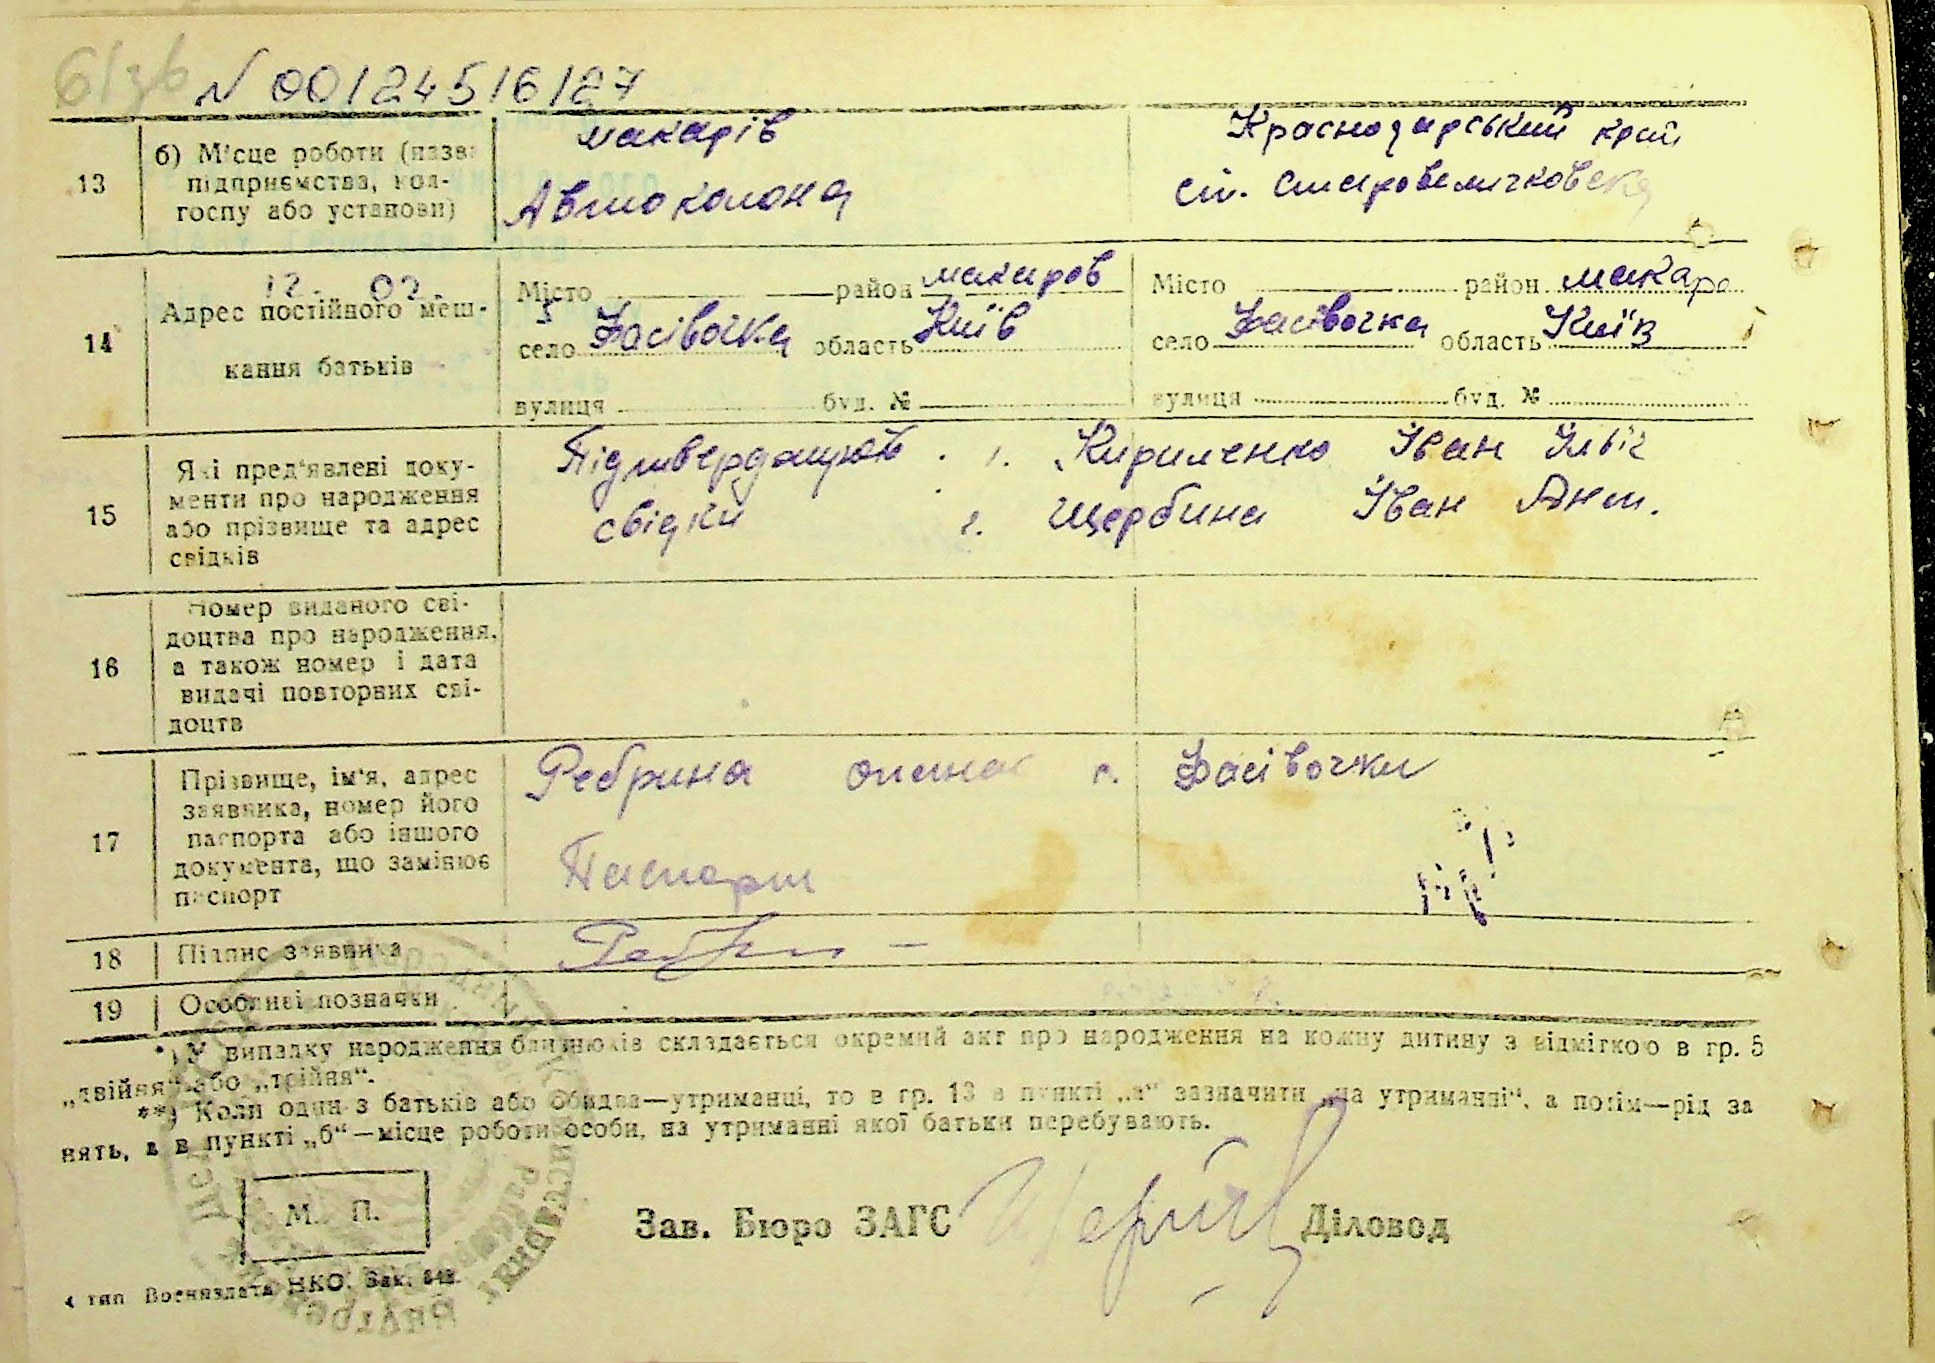 N 00124516127
13
б) Місце роботи (назва
підприємства, кол-
госпу або установи)
Макарів
Автоколона
Краснодарський край
ст. Старовеличковска
14
12. 02.
Адрес постійного меш-
кання батьків
Місто район Макаров
село Фасівочка область Київ
вулиця буд. №
Місто район Макаро
село Фасівочка область Київ
вулиця буд. №
15
Які пред'явлені доку-
менти про народження
або прізвище та адрес
свідків
Підтверджують 1. Кириленко Іван Ільіч
свідки 2. Щербина Іван Ант.
16
Номер виданого сві-
доцтва про народження,
а також номер і дата
видачі повторних сві-
доцтв
17
Прізвище, ім'я, адрес
заявника, номер його
паспорта або іншого
документа, що замінює
паспорт
Ребрина с. Фасівочки
Паспорт
18
Підпис заявника
19
Особливі позначки
*) У випадку народження близнюків складається окремий акт про народження на кожну дитину з відміткою в гр. 5
„двійня“ або „трійня“.
**) Коли один з батьків або обидва—утриманці, то в гр. 13 в пункті „а“ зазначити „на утриманні“, а потім—рід за
нять, а в пункті „б“—місце роботи особи, на утриманні якої батьки перебувають.
М. П.
Зав. Бюро ЗАГС Діловод
4 тип Воениздата НКО. Зак. 848.